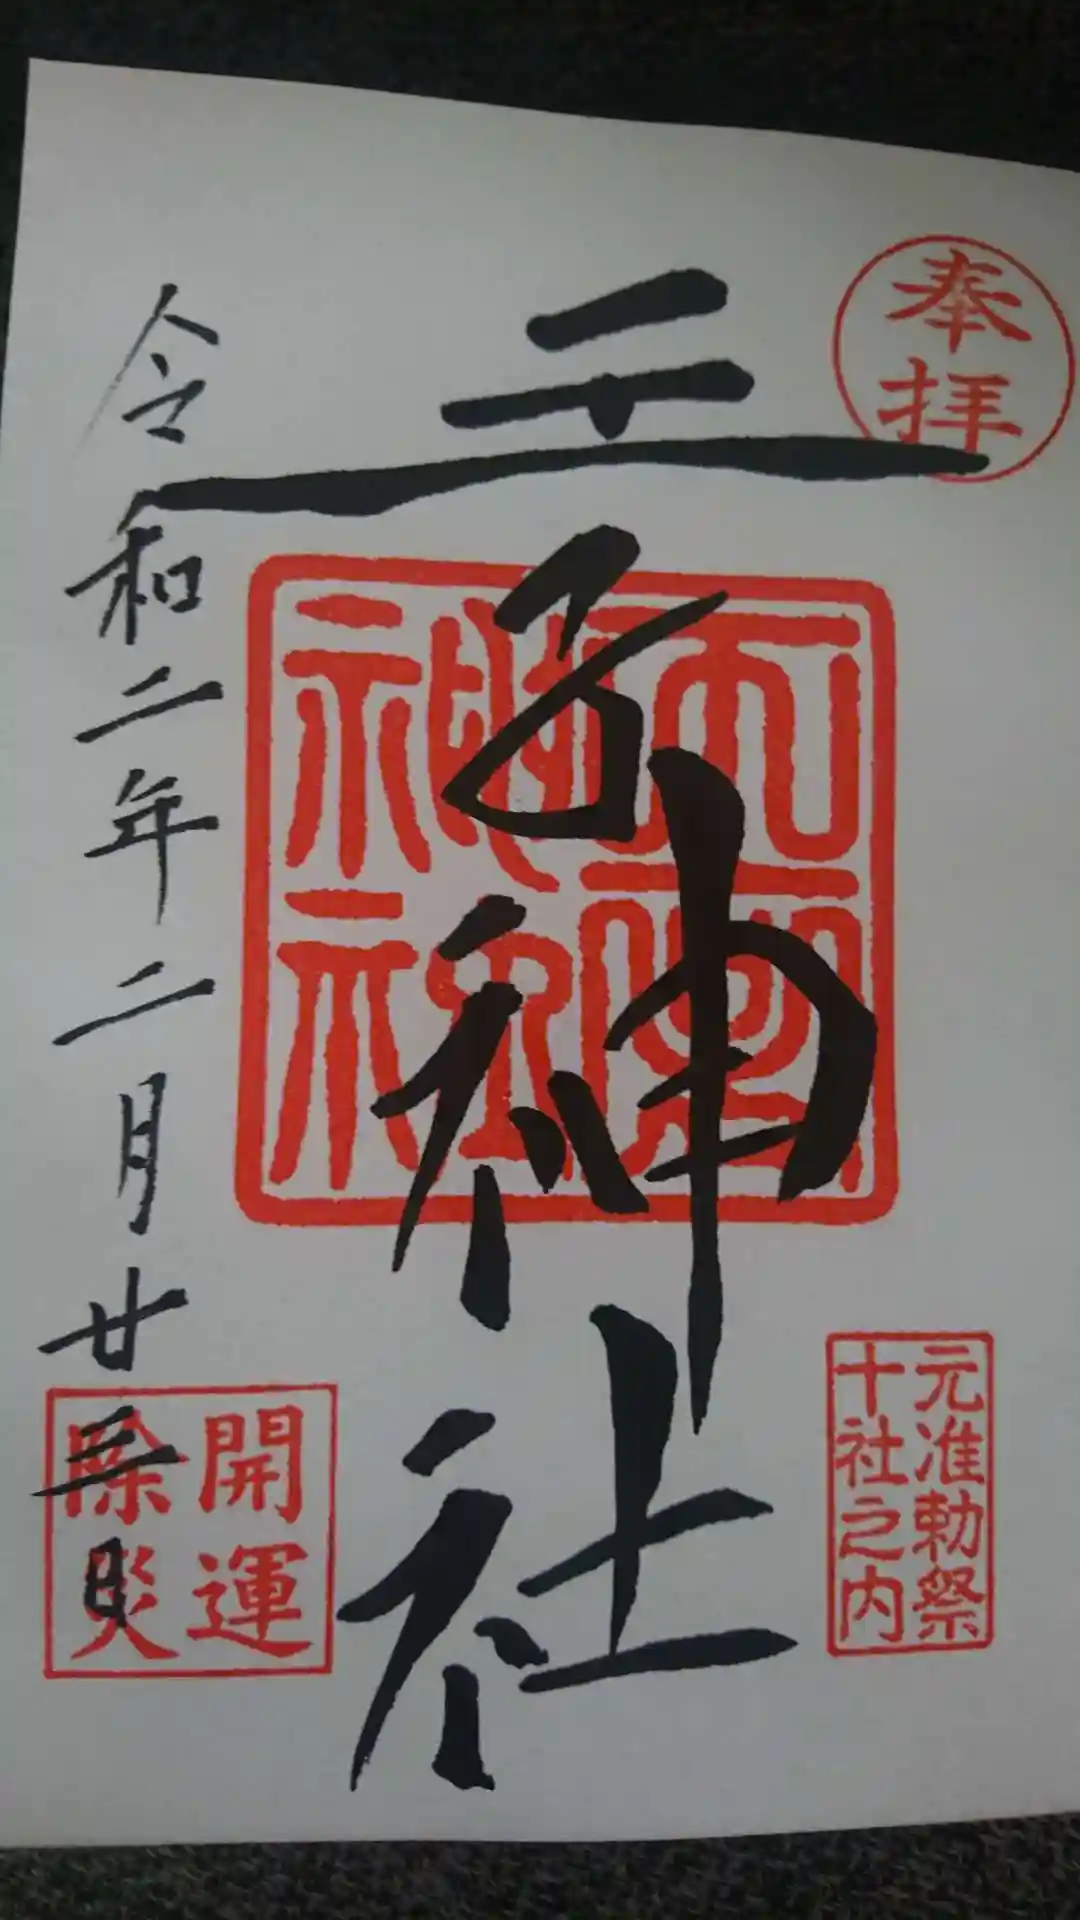 奉拝
元准勅祭
十社之内
王子神社
神社
開運
除災
令和二年二月廿三日